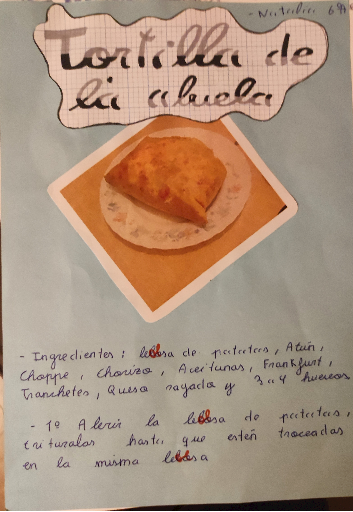 - Natalia 6ºA
Tortilla de
la abuela
- Ingredientes: bolsa de patatas, Atún,
Choppe, chorizo, Aceitunas, Frankfurt,
Tranchetes, Queso rayado y 3 a 4 huevos
- 1º Abrir la bolsa de patatas,
trituralas hasta que estén troceadas
en la misma bolsa